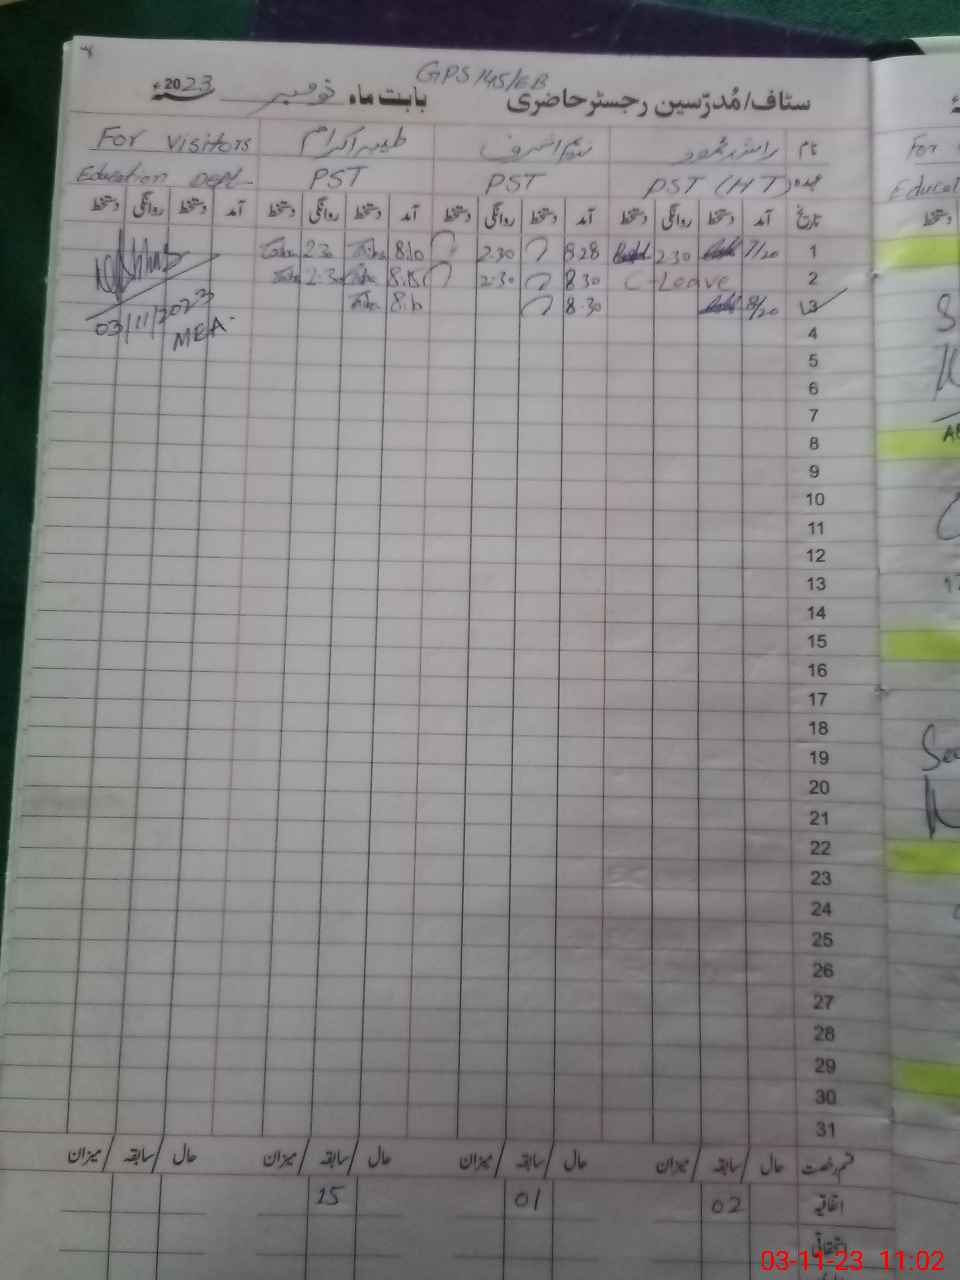 GPS 145/EB
سٹاف/مُدرّسین رجسٹر حاضری بابت ماہ نومبر 2023ء
نام راشد محمود طیبہ اکرام For visitors
عہدہ PST (HT) PST PST Education Dept-
تاریخ آمد دستخط روانگی دستخط آمد دستخط روانگی دستخط آمد دستخط روانگی دستخط آمد دستخط روانگی دستخط
1 7/20 2.30 8.28 2.30 8.10 2.30
2 C-Leave 8.30 2:30 8.15 2.30
3 8/20 8.30 8.10
03/11/2023
MEA
4
5
6
7
8
9
10
11
12
13
14
15
16
17
18
19
20
21
22
23
24
25
26
27
28
29
30
31
قسم رخصت حال سابقہ میزان حال سابقہ میزان حال سابقہ میزان حال سابقہ میزان
اتفاقیہ 02 01 15
استحقاقی
For
Educat
دستخط
03-11-23 11:02